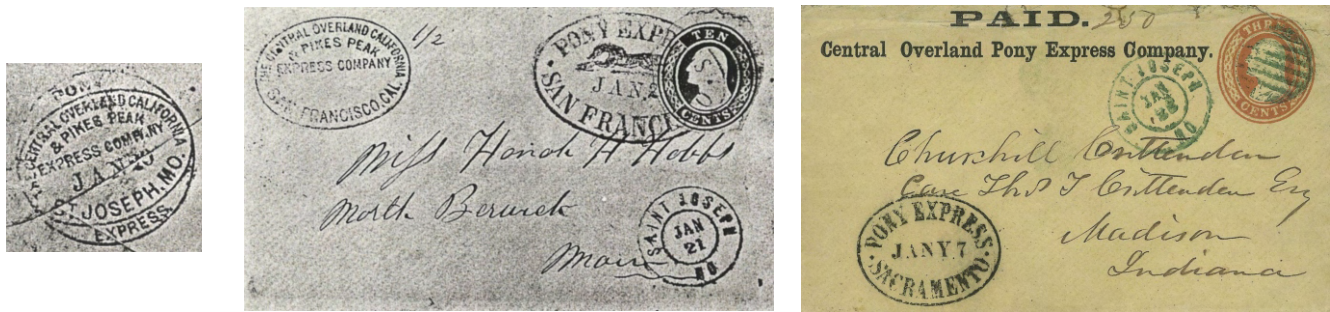 PONY
CENTRAL OVERLAND CALIFORNIA
& PIKES PEAK
EXPRESS COMPANY
JAN 20
ST JOSEPH, MO.
EXPRESS.
THE CENTRAL OVERLAND CALIFORNIA
& PIKES PEAK
EXPRESS COMPANY
SAN FRANCISCO, CAL.
1/2
PONY EXPRE
JAN. 2
SAN FRANCI
TEN
U.S.
CENTS
Miss Honah H Hobbs
North Berwick
Main
SAINT JOSEPH
JAN
21
MO
PAID. 250
Central Overland Pony Express Company.
SAINT JOSEPH
JAN
MO
THR
CENTS
Churchill Crittenden
Care Thos T Crittenden Esq
Madison
Indiana
PONY EXPRESS
JANY. 7
SACRAMENTO